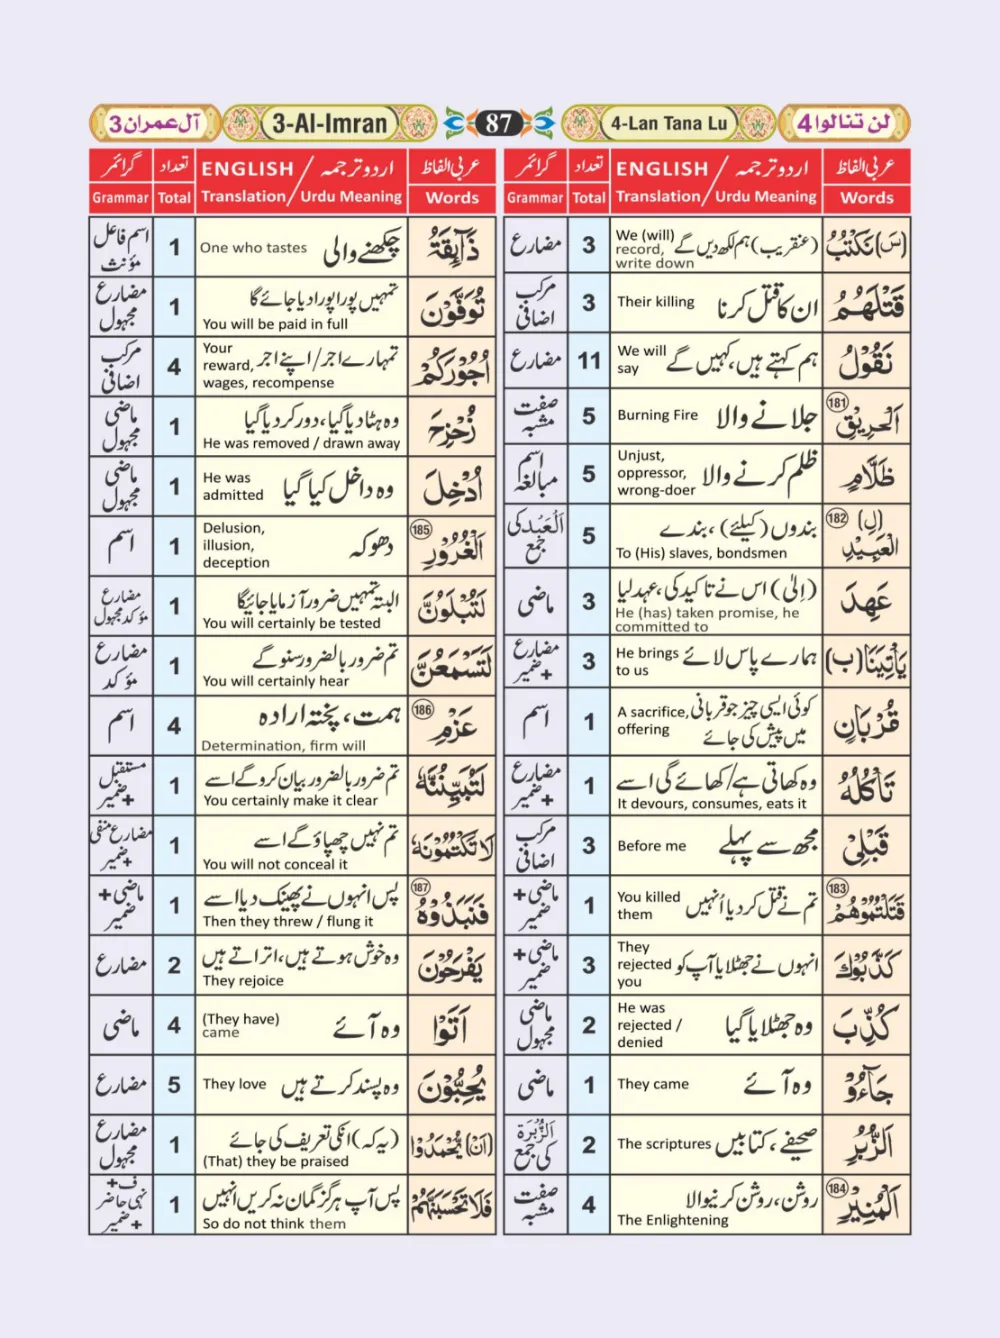 آل عمران 3
3-Al-Imran
87
4-Lan Tana Lu
لن تنالوا 4
عربی الفاظ
ENGLISH / اردو ترجمہ
تعداد
گرائمر
Words
Translation / Urdu Meaning
Total
Grammar
(سَ) نَكْتُبُ
We (will) record, write down
(عنقریب) ہم لکھ دیں گے
3
مضارع
قَتْلَهُمُ
Their killing
ان کا قتل کرنا
3
مرکب اضافی
نَقُوْلُ
We will say
ہم کہتے ہیں، کہیں گے
11
مضارع
الْحَرِيْقِ (181)
Burning Fire
جلانے والا
5
صفت مشبہ
ظَلَّامٍ
Unjust, oppressor, wrong-doer
ظلم کرنے والا
5
اسم مبالغہ
(لِ) الْعَبِيْدِ (182)
بندوں (کیلئے)، بندے
To (His) slaves, bondsmen
5
اَلْعَبْد کی جمع
عَهِدَ
(اِلٰی) اس نے تاکید کی، عہد لیا
He (has) taken promise, he committed to
3
ماضی
يَأْتِيَنَا (ب)
He brings to us
ہمارے پاس لائے
3
مضارع + ضمیر
قُرْبَانٍ
A sacrifice, offering
کوئی ایسی چیز جو قربانی میں پیش کی جائے
1
اسم
تَأْكُلُهُ
وہ کھاتی ہے/کھائے گی اسے
It devours, consumes, eats it
1
مضارع + ضمیر
قَبْلِيْ
Before me
مجھ سے پہلے
3
مرکب اضافی
قَتَلْتُمُوْهُمْ (183)
You killed them
تم نے قتل کر دیا اُنہیں
1
ماضی + ضمیر
كَذَّبُوْكَ
They rejected you
انہوں نے جھٹلایا آپ کو
3
ماضی + ضمیر
كُذِّبَ
He was rejected / denied
وہ جھٹلایا گیا
2
ماضی مجہول
جَآءُوْ
They came
وہ آئے
1
ماضی
الزُّبُرِ
The scriptures
صحیفے، کتابیں
2
اَلزُّبْرَة کی جمع
الْمُنِيْرِ (184)
روشن، روشن کرنیوالا
The Enlightening
4
صفت مشبہ
عربی الفاظ
ENGLISH / اردو ترجمہ
تعداد
گرائمر
Words
Translation / Urdu Meaning
Total
Grammar
ذَآئِقَةُ
One who tastes
چکھنے والی
1
اسم فاعل مؤنث
تُوَفَّوْنَ
تمہیں پورا پورا دیا جائے گا
You will be paid in full
1
مضارع مجہول
اُجُوْرَكُمْ
Your reward, wages, recompense
تمہارے اجر/اپنے اجر
4
مرکب اضافی
زُحْزِحَ
وہ ہٹا دیا گیا، دور کر دیا گیا
He was removed / drawn away
1
ماضی مجہول
اُدْخِلَ
He was admitted
وہ داخل کیا گیا
1
ماضی مجہول
الْغُرُوْرِ (185)
Delusion, illusion, deception
دھوکہ
1
اسم
لَتُبْلَوُنَّ
البتہ تمہیں ضرور آزمایا جائیگا
You will certainly be tested
1
مضارع مؤکد مجہول
لَتَسْمَعُنَّ
تم ضرور بالضرور سنو گے
You will certainly hear
1
مضارع مؤکد
عَزْمِ (186)
ہمت، پختہ ارادہ
Determination, firm will
4
اسم
لَتُبَيِّنُنَّهٗ
تم ضرور بالضرور بیان کرو گے اسے
You certainly make it clear
1
مستقبل + ضمیر
لَا تَكْتُمُوْنَهٗ
تم نہیں چھپاؤ گے اسے
You will not conceal it
1
مضارع منفی + ضمیر
فَنَبَذُوْهُ (187)
پس انہوں نے پھینک دیا اسے
Then they threw / flung it
1
ماضی + ضمیر
يَفْرَحُوْنَ
وہ خوش ہوتے ہیں، اتراتے ہیں
They rejoice
2
مضارع
اَتَوْا
(They have) came
وہ آئے
4
ماضی
يُحِبُّوْنَ
They love
وہ پسند کرتے ہیں
5
مضارع
(اَنْ) يُّحْمَدُوْا
(یہ کہ) انکی تعریف کی جائے
(That) they be praised
1
مضارع مجہول
فَلَا تَحْسَبَنَّهُمْ
پس آپ ہرگز گمان نہ کریں انہیں
So do not think them
1
ف + نہی حاضر + ضمیر